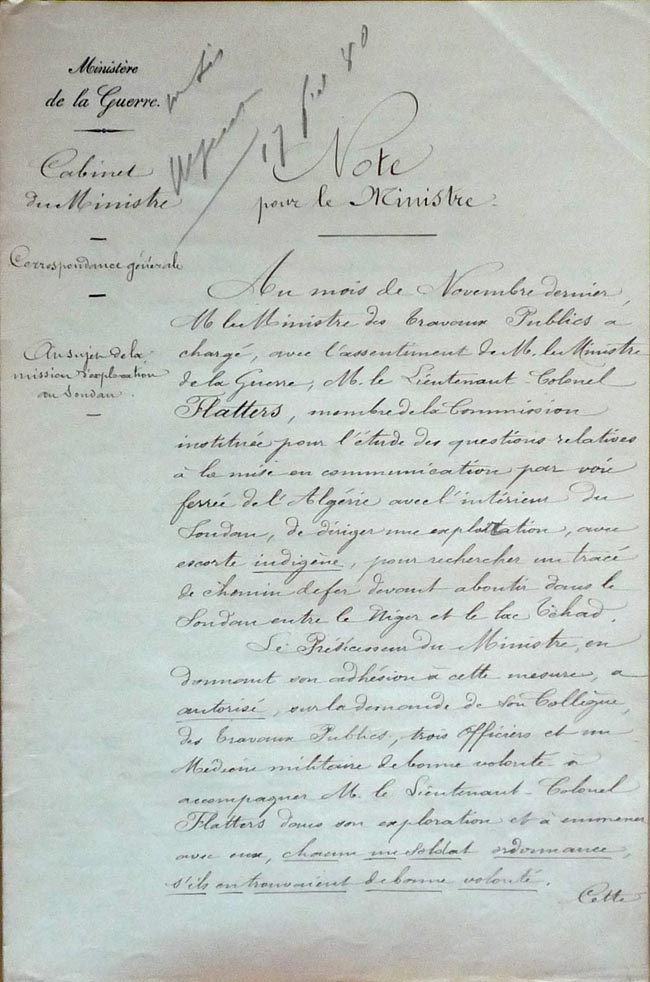 Ministère
de la Guerre.
Cabinet
du Ministre
Correspondance générale
Au sujet de la
mission d'exploration
au Soudan.
17 fév 80
Note
pour le Ministre.
Au mois de Novembre dernier,
M. le Ministre des Travaux Publics a
chargé, avec l'assentiment de M. le Ministre
de la Guerre, M. le Lieutenant-Colonel
Flatters, membre de la Commission
instituée pour l'étude des questions relatives
à la mise en communication par voie
ferrée de l'Algérie avec l'intérieur du
Soudan, de diriger une exploitation, avec
escorte indigène, pour rechercher un tracé
de chemin de fer devant aboutir dans le
Soudan entre le Niger et le lac Tchad.
Le Prédécesseur du Ministre, en
donnant son adhésion à cette mesure, a
autorisé, sur la demande de son Collègue,
des Travaux Publics, trois Officiers et un
Médecin militaire de bonne volonté à
accompagner M. le Lieutenant-Colonel
Flatters dans son exploration et à emmener
avec eux, chacun un soldat ordonnance,
s'ils en trouvaient de bonne volonté.
Cette